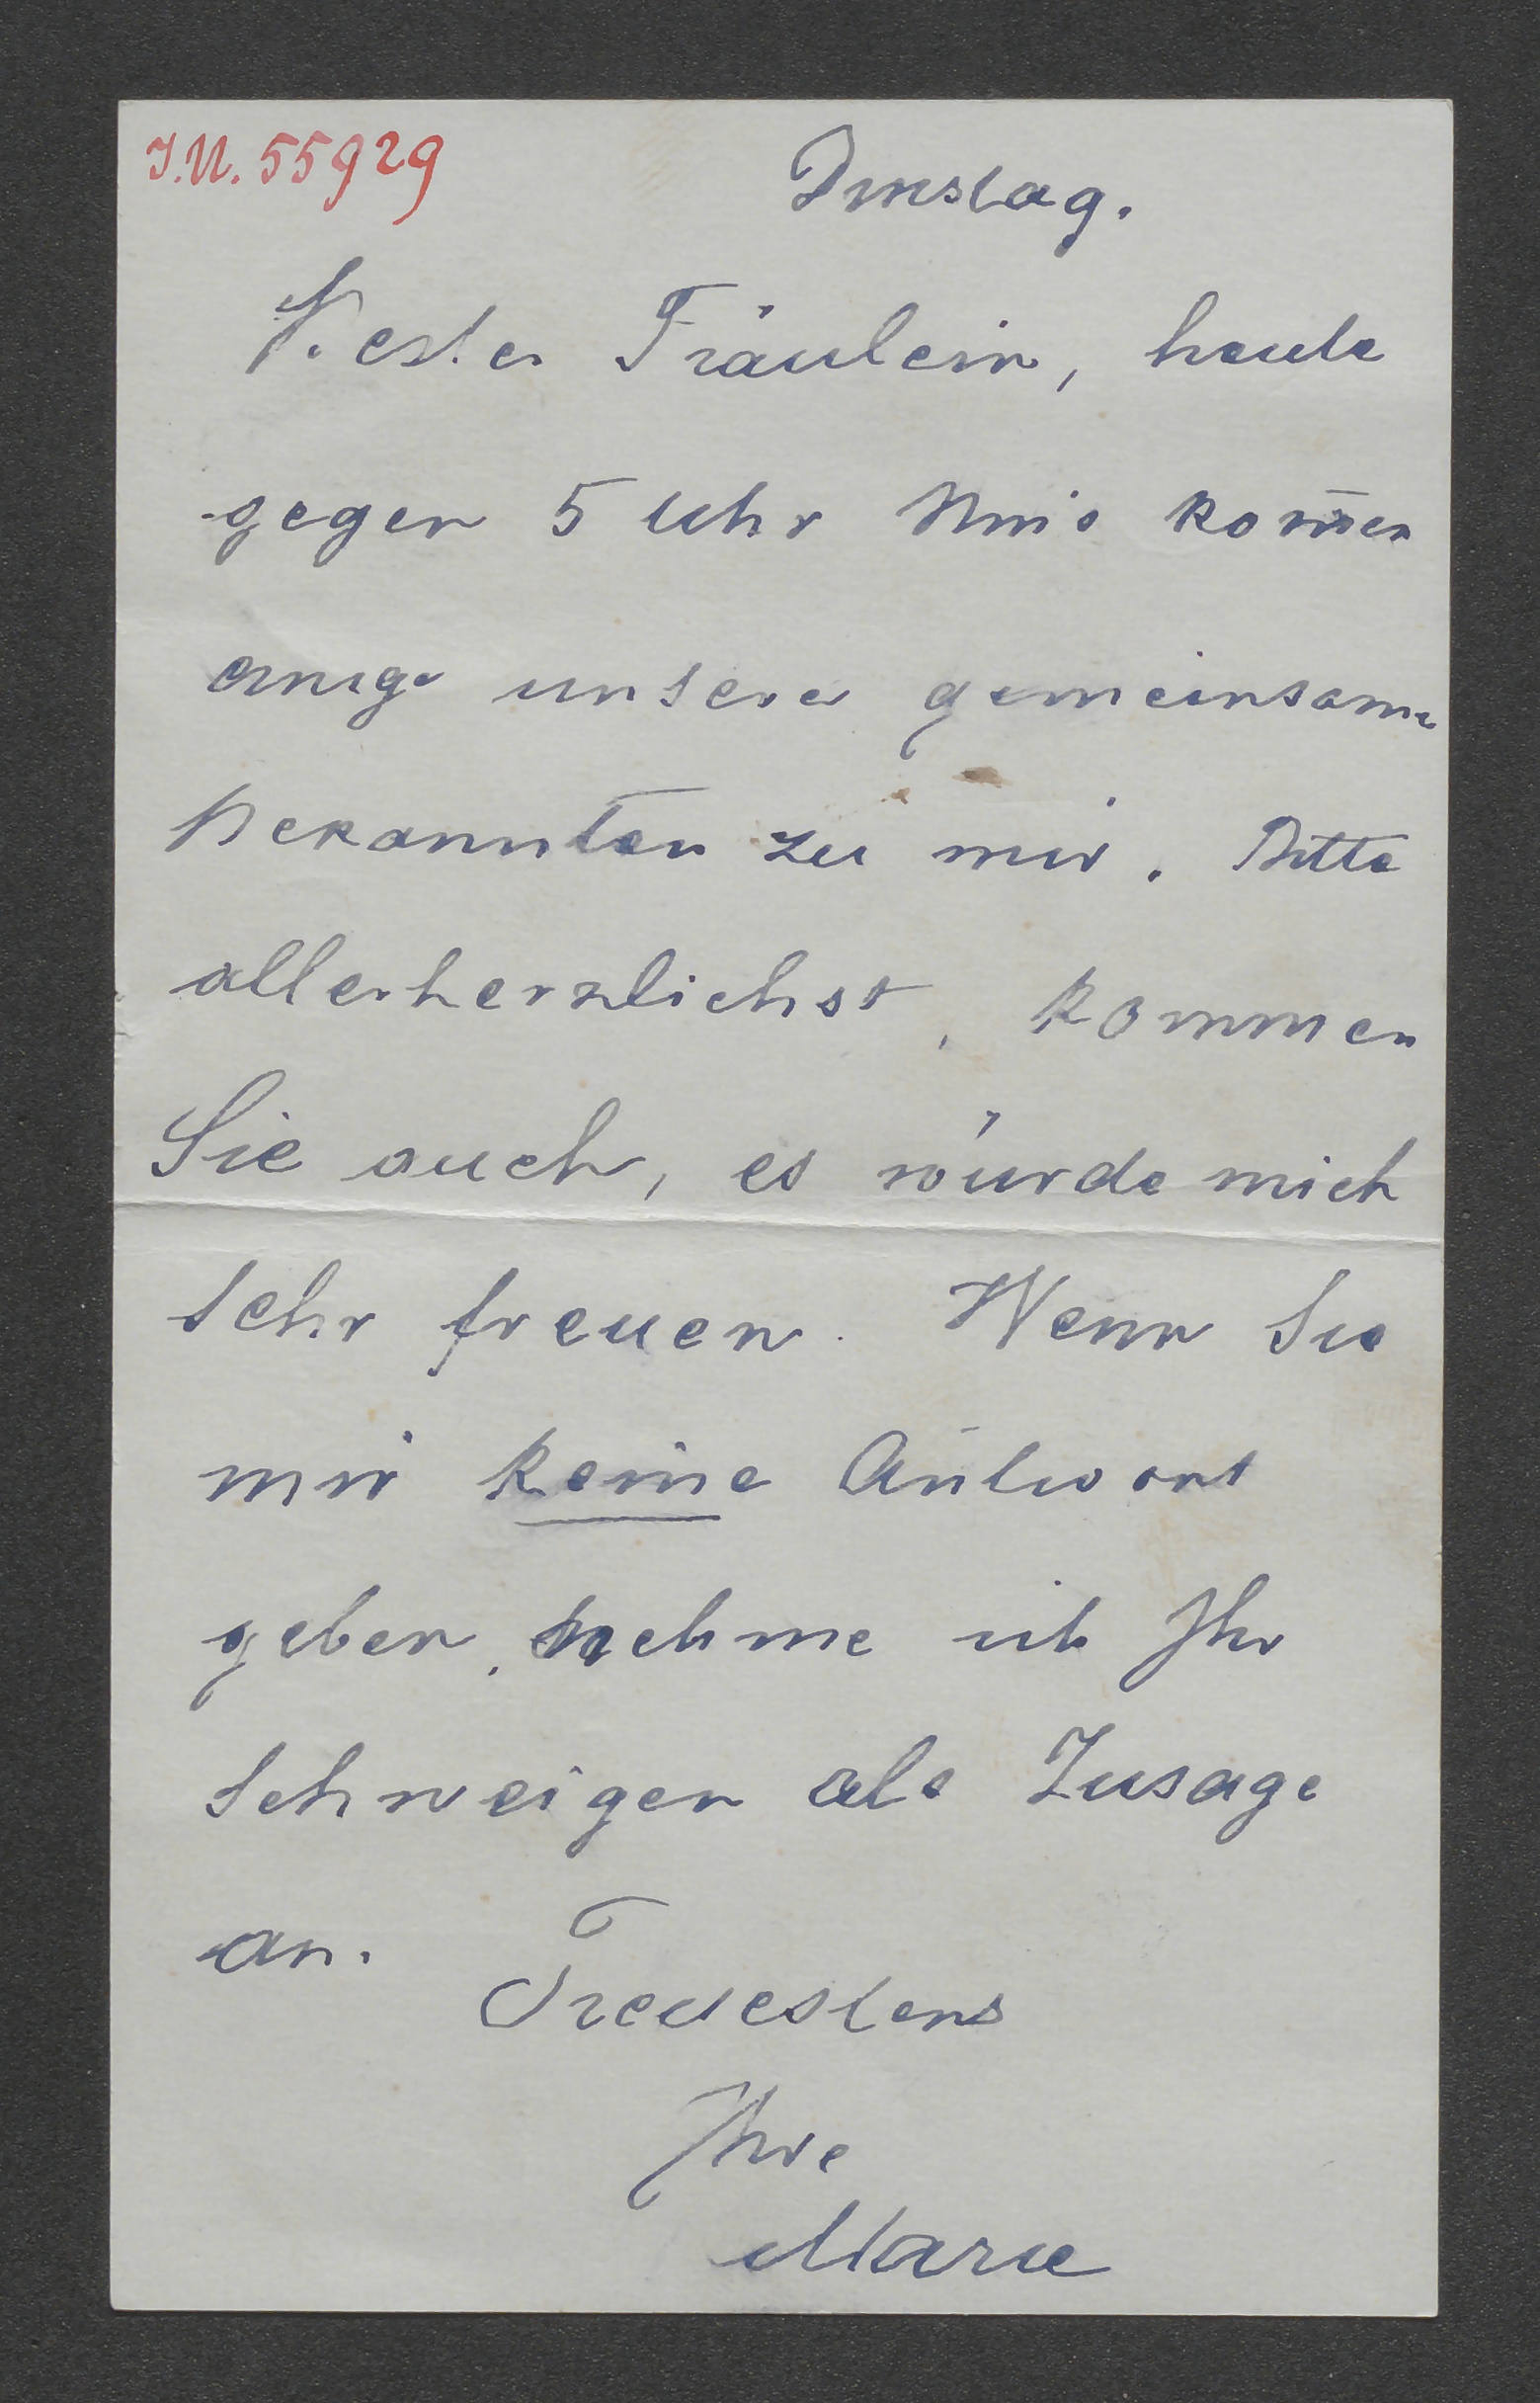 I.N. 55929
Dinstag.
Bestes Fräulein, heute
gegen 5 Uhr kom̅en
einige unserer gemeinsame
Bekannten zu mir. Bitte
allerherzlichst, kommen
Sie auch, es würde mich
sehr freuen. Wenn Sie
mir keine Antwort
geben, nehme ich Ihr
Schweigen als Zusage
an.
Treuestens
Ihre
Marie